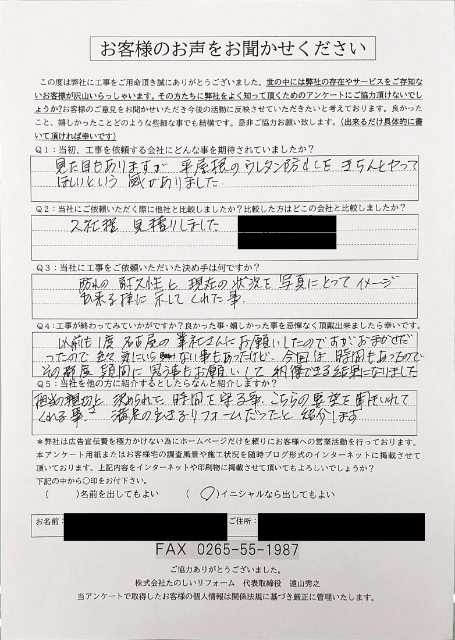 お客様のお声をお聞かせください
この度は弊社に工事をご用命頂き誠にありがとうございました。世の中には弊社の存在やサービスをご存知な
いお客様が沢山いらっしゃいます。その方たちに弊社をよく知って頂くためのアンケートにご協力頂けないでし
ょうか?お客様のご意見をお聞かせいただき今後の活動に反映させていただきたいと考えております。良かった
こと、嬉しかったことどのような些細な事でも結構です。是非ご協力お願い致します。(出来るだけ具体的に書
いて頂ければ幸いです)
Q1:当初、工事を依頼する会社にどんな事を期待されていましたか?
見た目もありますが 平屋根のウレタン防水をきちんとやって
ほしいという 感がありました
Q2:当社にご依頼いただく際に他社と比較しましたか?比較した方はどこの会社と比較しましたか?
2社程 見積りしました
Q3:当社に工事をご依頼いただいた決め手は何ですか?
防水の耐久性と、現在の状況を写真にとってイメージ
出来る様に示してくれた事。
Q4:工事が終わってみていかがですか?良かった事・嬉しかった事を忌憚なく頂戴出来ましたら幸いです。
以前も1度 名古屋の業社さんにお願いしたのですがおまかせだ
ったので 気に入らない事もあったけど、今回は時間もあるので
その都度 質問に 見積もお願いして 納得できる結果になりました
Q5:当社を他の方に紹介するとしたらなんと紹介しますか?
親切と 決められた時間を守る事、こちらの要望を聞き入れて
くれる事。 満足のできるリフォームだったと紹介します
*弊社は広告宣伝費を極力かけない為にホームページだけを頼りにお客様への営業活動を行っております。
本アンケート用紙またはお客様宅の調査風景や施工状況を随時ブログ形式のインターネットに掲載させて
頂いております。上記内容をインターネットや印刷物に掲載させて頂いてもよろしいでしょうか?
下記の中から〇印をお付下さい。
( )名前を出してもよい ( 〇 )イニシャルなら出してもよい
お名前: ご住所:
FAX 0265-55-1987
ご協力ありがとうございました。
株式会社たのしいリフォーム 代表取締役 遠山秀之
当アンケートで取得したお客様の個人情報は関係法規に基づき厳正に管理いたします。